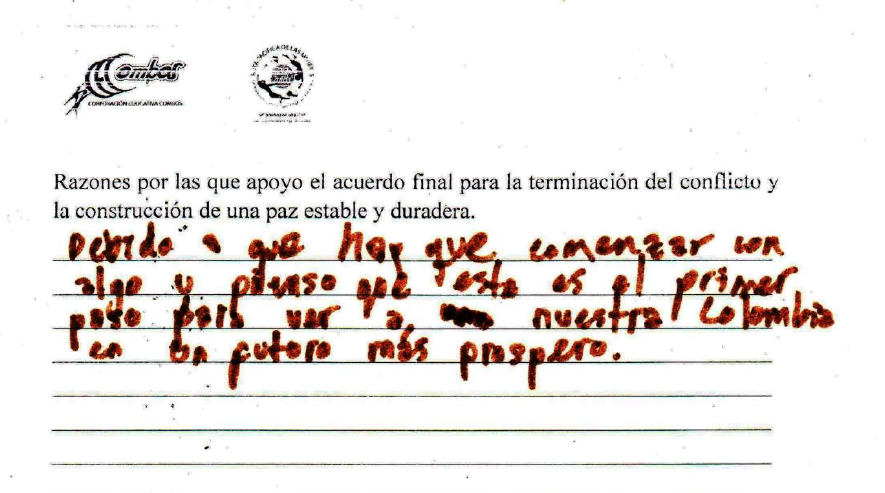 Combos
CORPORACIÓN EDUCATIVA COMBOS
Razones por las que apoyo el acuerdo final para la terminación del conflicto y
la construcción de una paz estable y duradera.
Debido a que hay que comenzar con
algo y pienso que esta es el primer
paso para ver a nuestra Colombia
en un futuro más prospero.